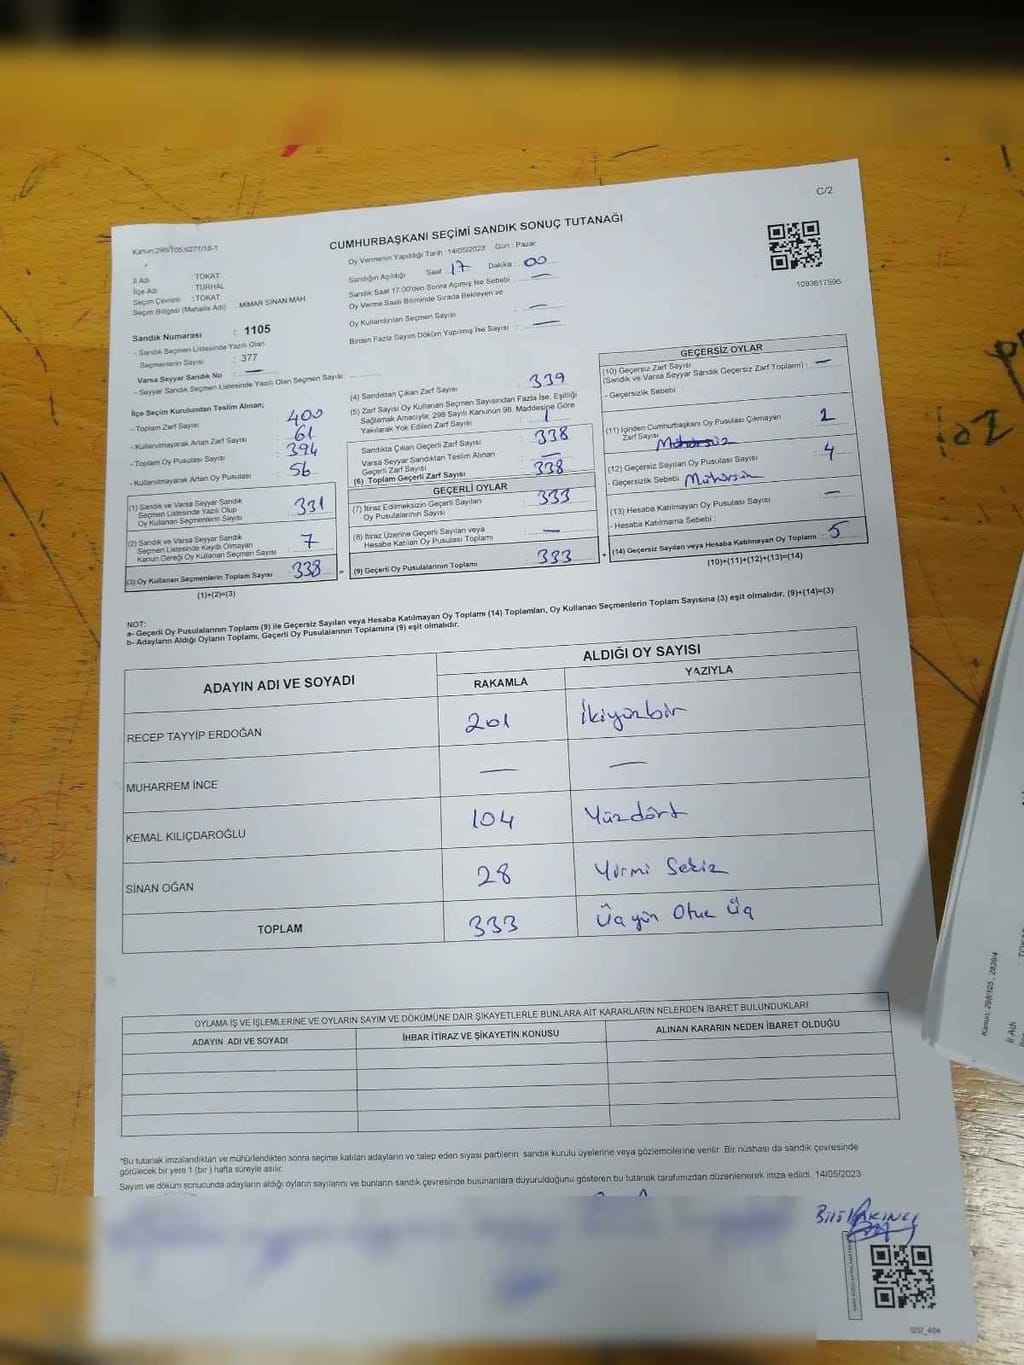 C/2
Kanun:298/105:6271/18-1
CUMHURBAŞKANI SEÇİMİ SANDIK SONUÇ TUTANAĞI
Oy Vermenin Yapıldığı Tarih : 14/05/2023 Gün : Pazar
İl Adı : TOKAT
İlçe Adı : TURHAL
Seçim Çevresi : TOKAT
Seçim Bölgesi (Mahalle Adı) : MİMAR SİNAN MAH.
Sandığın Açıldığı Saat : 17 Dakika : 00
Sandık Saat 17:00'den Sonra Açılmış İse Sebebi : —
Oy Verme Saati Bitiminde Sırada Bekleyen ve
Oy Kullandırılan Seçmen Sayısı : —
Birden Fazla Sayım Döküm Yapılmış İse Sayısı : —
1093617595
Sandık Numarası : 1105
- Sandık Seçmen Listesinde Yazılı Olan
Seçmenlerin Sayısı : 377
Varsa Seyyar Sandık No : —
- Seyyar Sandık Seçmen Listesinde Yazılı Olan Seçmen Sayısı:
İlçe Seçim Kurulundan Teslim Alınan;
- Toplam Zarf Sayısı : 400
- Kullanılmayarak Artan Zarf Sayısı : 61
- Toplam Oy Pusulası Sayısı : 394
- Kullanılmayarak Artan Oy Pusulası : 56
(1) Sandık ve Varsa Seyyar Sandık
Seçmen Listesinde Yazılı Olup
Oy Kullanan Seçmenlerin Sayısı : 331
(2) Sandık ve Varsa Seyyar Sandık
Seçmen Listesinde Kaydı Olmayan
Kanun Gereği Oy Kullanan Seçmen Sayısı : 7
(3) Oy Kullanan Seçmenlerin Toplam Sayısı : 338
(1)+(2)=(3)
(4) Sandıktan Çıkan Zarf Sayısı : 339
(5) Zarf Sayısı Oy Kullanan Seçmen Sayısından Fazla İse, Eşitliği
Sağlamak Amacıyla; 298 Sayılı Kanunun 98. Maddesine Göre
Yakılarak Yok Edilen Zarf Sayısı : 1
Sandıkta Çıkan Geçerli Zarf Sayısı : 338
Varsa Seyyar Sandıktan Teslim Alınan
Geçerli Zarf Sayısı : —
(6) Toplam Geçerli Zarf Sayısı : 338
GEÇERLİ OYLAR
(7) İtiraz Edilmeksizin Geçerli Sayılan
Oy Pusulalarının Sayısı : 333
(8) İtiraz Üzerine Geçerli Sayılan veya
Hesaba Katılan Oy Pusulası Toplamı : —
(9) Geçerli Oy Pusulalarının Toplamı : 333
GEÇERSİZ OYLAR
(10) Geçersiz Zarf Sayısı
(Sandık ve Varsa Seyyar Sandık Geçersiz Zarf Toplamı) : —
- Geçersizlik Sebebi :
(11) İçinden Cumhurbaşkanı Oy Pusulası Çıkmayan
Zarf Sayısı : 1
(12) Geçersiz Sayılan Oy Pusulası Sayısı : 4
- Geçersizlik Sebebi : Mühürsüz
(13) Hesaba Katılmayan Oy Pusulası Sayısı : —
- Hesaba Katılmama Sebebi :
(14) Geçersiz Sayılan veya Hesaba Katılmayan Oy Toplamı : 5
(10)+(11)+(12)+(13)=(14)
NOT:
a- Geçerli Oy Pusulalarının Toplamı (9) ile Geçersiz Sayılan veya Hesaba Katılmayan Oy Toplamı (14) Toplamları, Oy Kullanan Seçmenlerin Toplam Sayısına (3) eşit olmalıdır. (9)+(14)=(3)
b- Adayların Aldığı Oyların Toplamı, Geçerli Oy Pusulalarının Toplamına (9) eşit olmalıdır.
ADAYIN ADI VE SOYADI
ALDIĞI OY SAYISI
RAKAMLA YAZIYLA
RECEP TAYYİP ERDOĞAN 201 İkiyüzbir
MUHARREM İNCE — —
KEMAL KILIÇDAROĞLU 104 Yüzdört
SİNAN OĞAN 28 Yirmi Sekiz
TOPLAM 333 Üçyüz Otuz Üç
OYLAMA İŞ VE İŞLEMLERİNE VE OYLARIN SAYIM VE DÖKÜMÜNE DAİR ŞİKAYETLERLE BUNLARA AİT KARARLARIN NELERDEN İBARET BULUNDUKLARI
ADAYIN ADI VE SOYADI İHBAR İTİRAZ VE ŞİKAYETİN KONUSU ALINAN KARARIN NEDEN İBARET OLDUĞU
*Bu tutanak imzalandıktan ve mühürlendikten sonra seçime katılan adayların ve talep eden siyasi partilerin sandık kurulu üyelerine veya gözlemcilerine verilir. Bir nüshası da sandık çevresinde
görülecek bir yere 1 (bir) hafta süreyle asılır.
Sayım ve döküm sonucunda adayların aldığı oyların sayılarını ve bunların sandık çevresinde bulunanlara duyurulduğunu gösteren bu tutanak tarafımızdan düzenlenerek imza edildi. 14/05/2023
Kanun: 298/105, 2839/4
İl Adı